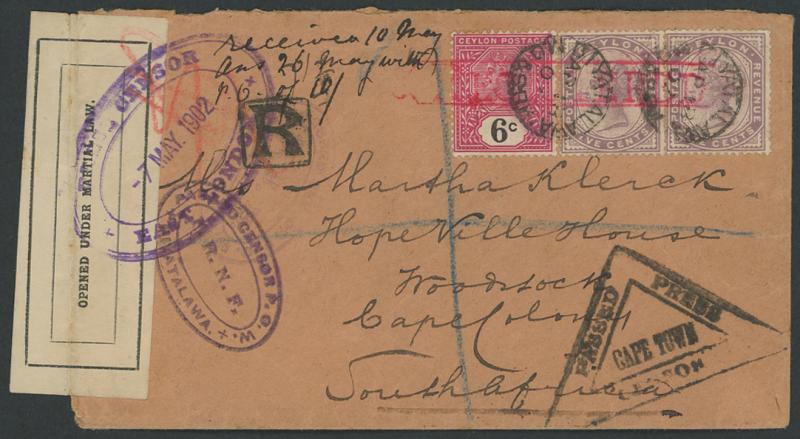 received 10 May
Ans 26/ May with
P.O. of 10/
CEYLON POSTAGE
6c
CEYLON
POSTAGE
REVENUE
FIVE CENTS
CEYLON
POSTAGE
REVENUE
FIVE CENTS
DIYATALAWA
OPENED UNDER MARTIAL LAW.
CENSOR
-7 MAY. 1902
EAST LONDON
R
CENSOR P.O.W.
R. N. F.
DIYATALAWA.
Mrs Martha Klerck
HopeVille House
Woodstock
Cape Colony
South Africa
PASSED
PRESS
CAPE TOWN
CENSOR